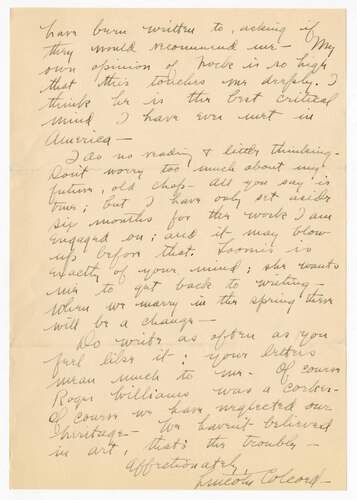 have been written to, asking if
they would recommend me— My
own opinion of Nock is so high
that this touches me deeply. I
think he is the best critical
mind I have ever met in
America—
I do no reading & little thinking—
Don't worry too much about my
future, old chap— All you say is
true; but I have only set aside
six months for the work I am
engaged on; and it may blow
up before that. Loomis is
exactly of your mind; she wants
me to get back to writing—
When we marry in the spring there
will be a change—
Do write as often as you
feel like it: your letters
mean much to me. Of course
Roger Williams was a corker—
Of course we have neglected our
heritage— We haven't believed
in art, that's the trouble—
Affectionately
Lincoln Colcord—